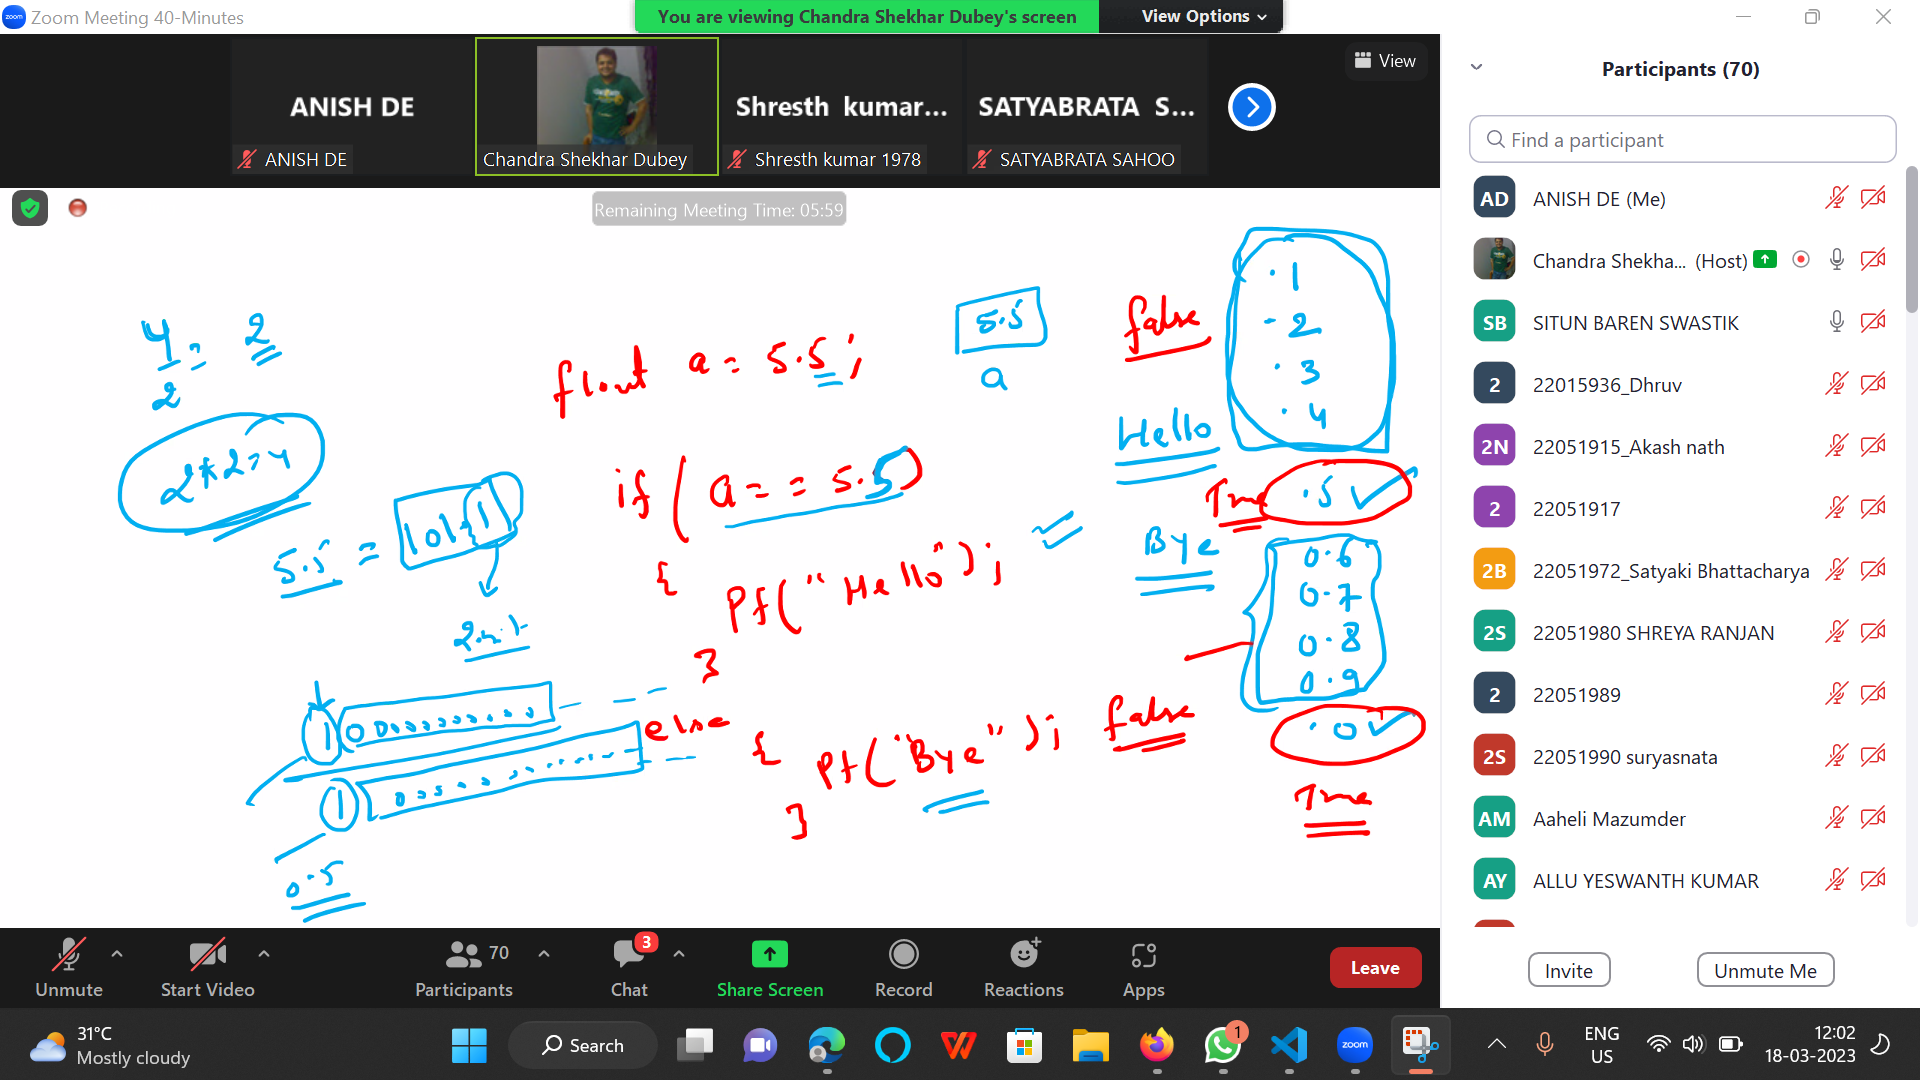 Zoom Meeting 40-Minutes
You are viewing Chandra Shekhar Dubey's screen
View Options
ANISH DE
Shresth kumar...
SATYABRATA S...
View
ANISH DE
Chandra Shekhar Dubey
Shresth kumar 1978
SATYABRATA SAHOO
Remaining Meeting Time: 05:59
4/2 = 2
2*2=4
5.5 = 101.1
0.5
float a = 5.5;
5.5
a
if (a == 5.5)
{ Pf("Hello");
}
else { Pf("Bye");
}
false
Hello
True
Bye
false
.1
.2
.3
.4
.5
0.6
0.7
0.8
0.9
.0
True
Participants (70)
Find a participant
AD ANISH DE (Me)
Chandra Shekha... (Host)
SB SITUN BAREN SWASTIK
2 22015936_Dhruv
2N 22051915_Akash nath
2 22051917
2B 22051972_Satyaki Bhattacharya
2S 22051980 SHREYA RANJAN
2 22051989
2S 22051990 suryasnata
AM Aaheli Mazumder
AY ALLU YESWANTH KUMAR
Invite
Unmute Me
Unmute
Start Video
70
Participants
3
Chat
Share Screen
Record
Reactions
Apps
Leave
31°C
Mostly cloudy
Search
zoom
1
ENG
US
12:02
18-03-2023